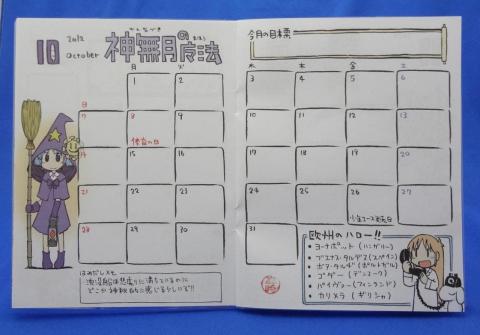 10 2012 October
神無月の魔法
かんなづき まほう
今月の目標
月 火 水 木 金 土
日
1 2 3 4 5 6
7 8 9 10 11 12 13
体育の日
14 15 16 17 18 19 20
21 22 23 24 25 26 27
少年エース発売日
28 29 30 31
欧州のハロー!!
・ヨーナポット (ハンガリー)
・ブエナス・タルデス (スペイン)
・ボア・タルデ (ポルトガル)
・ゴダー (デンマーク)
・パイヴァー (フィンランド)
・カリメラ (ギリシャ)
はみだしメモ